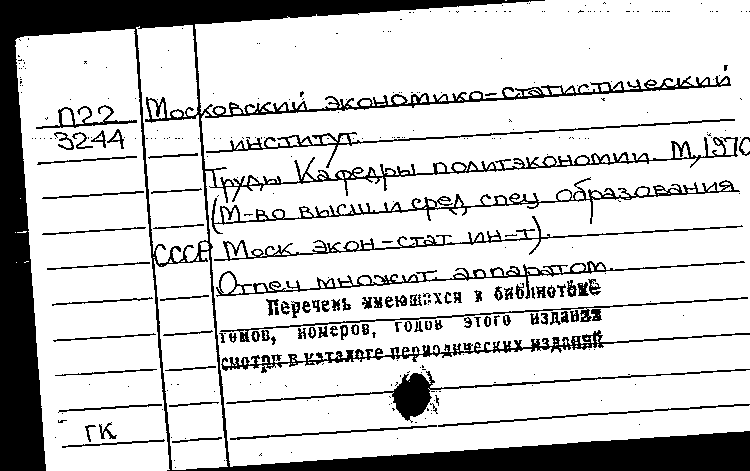 П22 Московский экономико-статистический
3244 институт.
Труды Кафедры политэкономии. М., 1970
(М-во высш. и сред. спец. образования
СССР Моск. экон-стат. ин-т).
Отпеч. множит. аппаратом.
Перечень имеющихся в библиотеке
томов, номеров, годов этого издания
смотри в каталоге периодических изданий
ГК